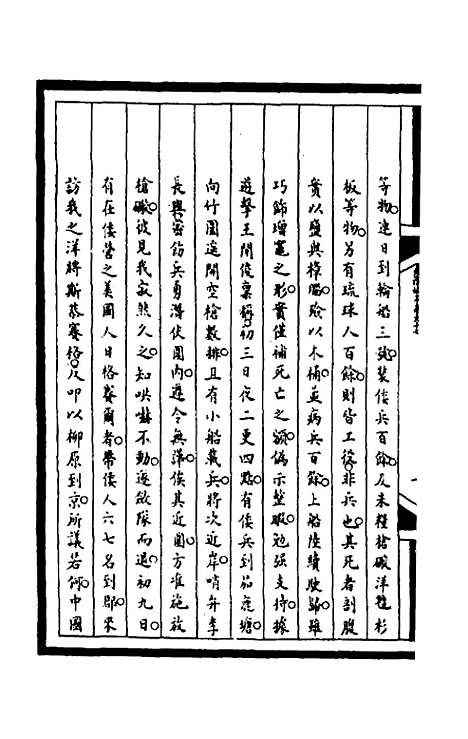 等物。連日到輪船三號。裝倭兵百餘。及米糧槍礮洋氈杉
板等物。另有琉球人百餘。則皆工役。非兵也。其死者剖腹
實以鹽與樟腦。殮以木桶。並病兵百餘。上船陸續駛歸。雖
巧飾增竈之形。實僅補死亡之額。偽示整暇。勉強支持。據
遊擊王開俊稟稱。初三日夜二更四點。有倭兵到茄鹿塘。
向竹圍遥開空槍數排。且有小船載兵。將次近岸。哨弁李
長興密飭兵勇潛伏圍內。遵令無譁。俟其近圍。方准施放
槍礮。彼見我寂然久之。知哄嚇不動。遂斂隊而退。初九日。
有在倭營之美國人日格賽爾者。帶倭人六七名到郡。來
訪我之洋將斯恭賽格。及叩以柳原到京。所議若何。中國